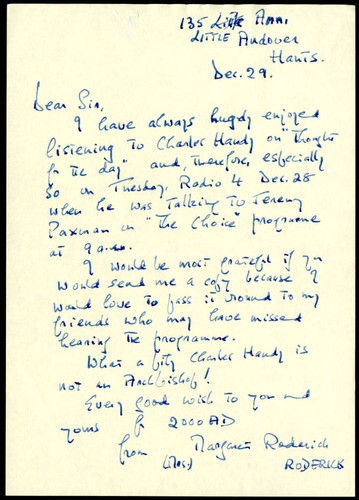 135 Little Ann,
LITTLE Andover
Hants.
Dec. 29.
Dear Sir,
I have always hugely enjoyed
listening to Charles Handy on "Thought
for the day" and, therefore, especially
so on Tuesday, Radio 4 Dec. 28
when he was talking to Jeremy
Paxman in "The Choice" programme
at 9 a.m.
I would be most grateful if you
would send me a copy because I
would love to pass it round to my
friends who may have missed
hearing the programme.
What a pity Charles Handy is
not an Archbishop!
Every good wish to you and
yours for 2000 AD
from Margaret Roderick
(Mrs.) RODERICK